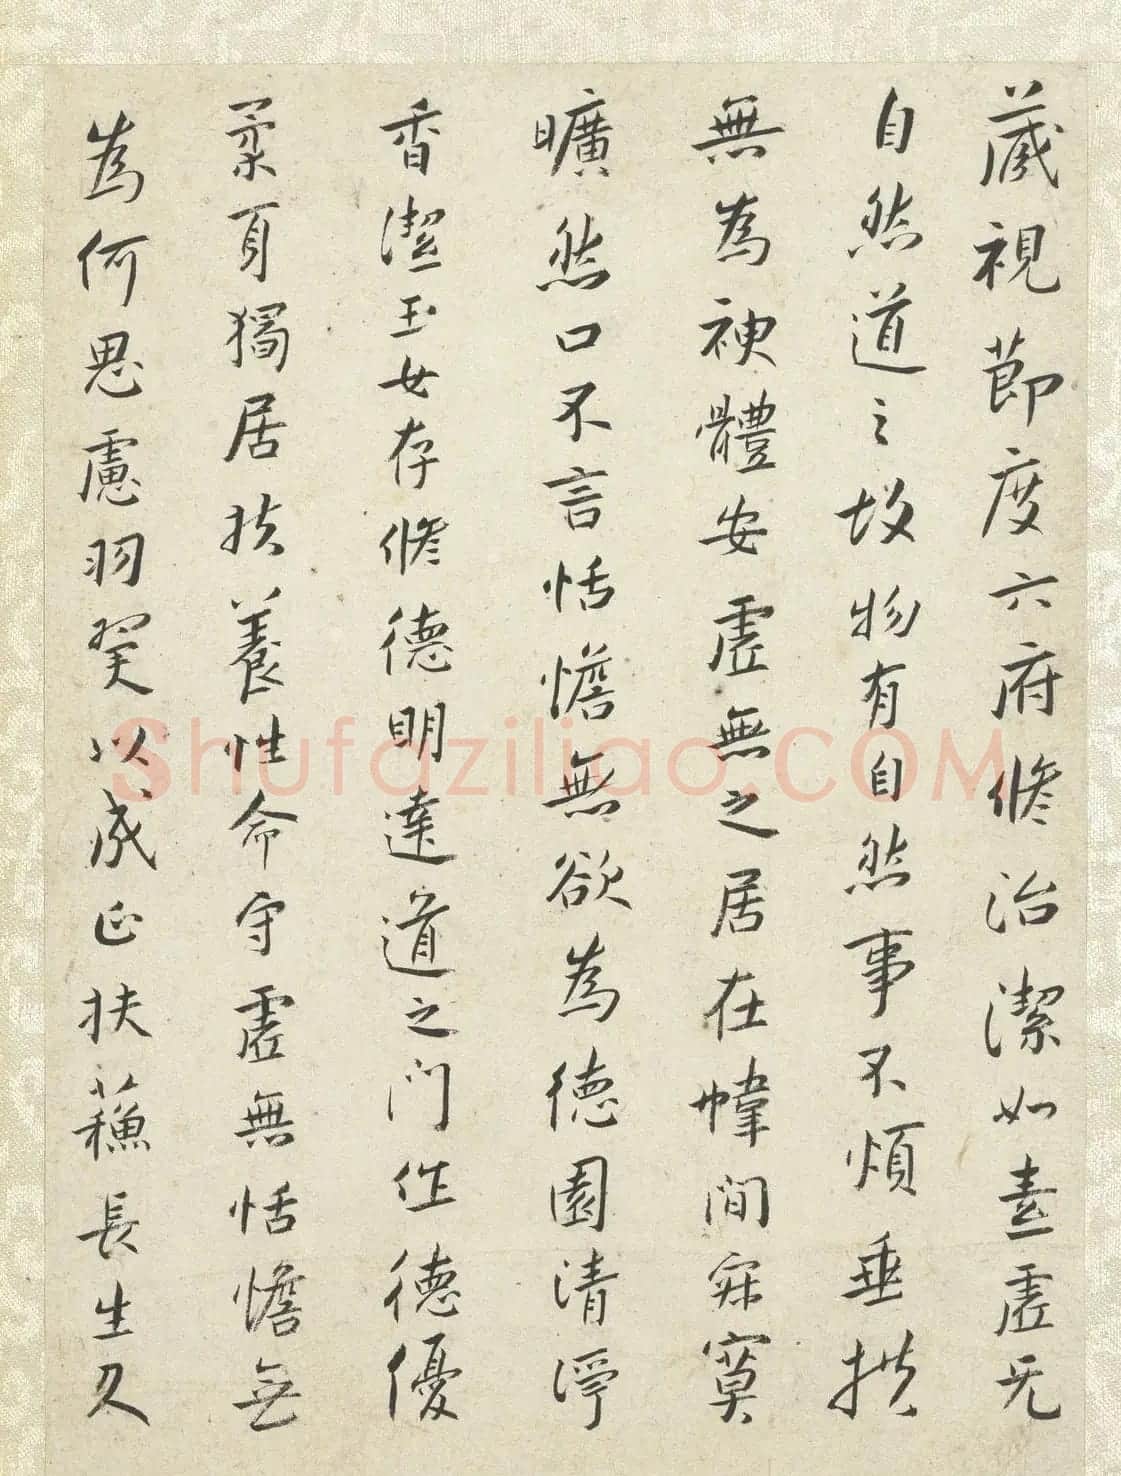 藏視節度六府修治潔如素虛无
自然道之故物有自然事不煩垂拱
無為神體安虛無之居在幃間寂寞
曠然口不言恬憺無欲為德園清淨
香潔玉女存修德明達道之門作德優
柔身獨居扶養性命守虛無恬憺無
為何思慮羽翼以成正扶蘓長生久
Shufaziliao.COM